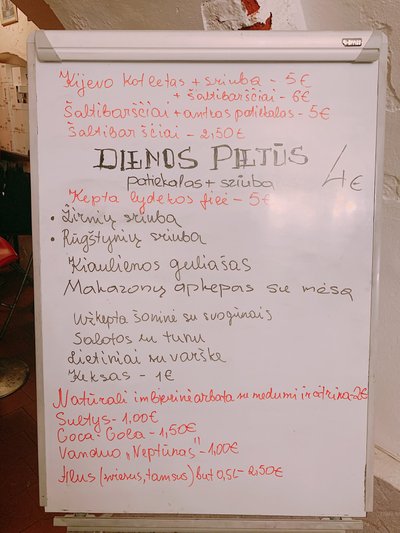 Kijevo kotletas + sriuba - 5€
+ šaltibarščiai - 6€
Šaltibarščiai + antras patiekalas - 5€
Šaltibarščiai - 2,50€
DIENOS PIETŪS
patiekalas + sriuba 4€
Kepta lydekos filė - 5€
• Žirnių sriuba
• Rūgštynių sriuba
Kiaulienos guliašas
Makaronų apkepas su mėsa
Užkepta šoninė su svogūnais
Salotos su tunu
Lietiniai su varške
Keksas - 1€
Natūrali imbierinė arbata su medumi ir citrina - 2€
Sultys - 1,00€
Coca-Cola - 1,50€
Vanduo „Neptūnas" - 1,00€
Alus (šviesus, tamsus) but 0,5L - 2,50€